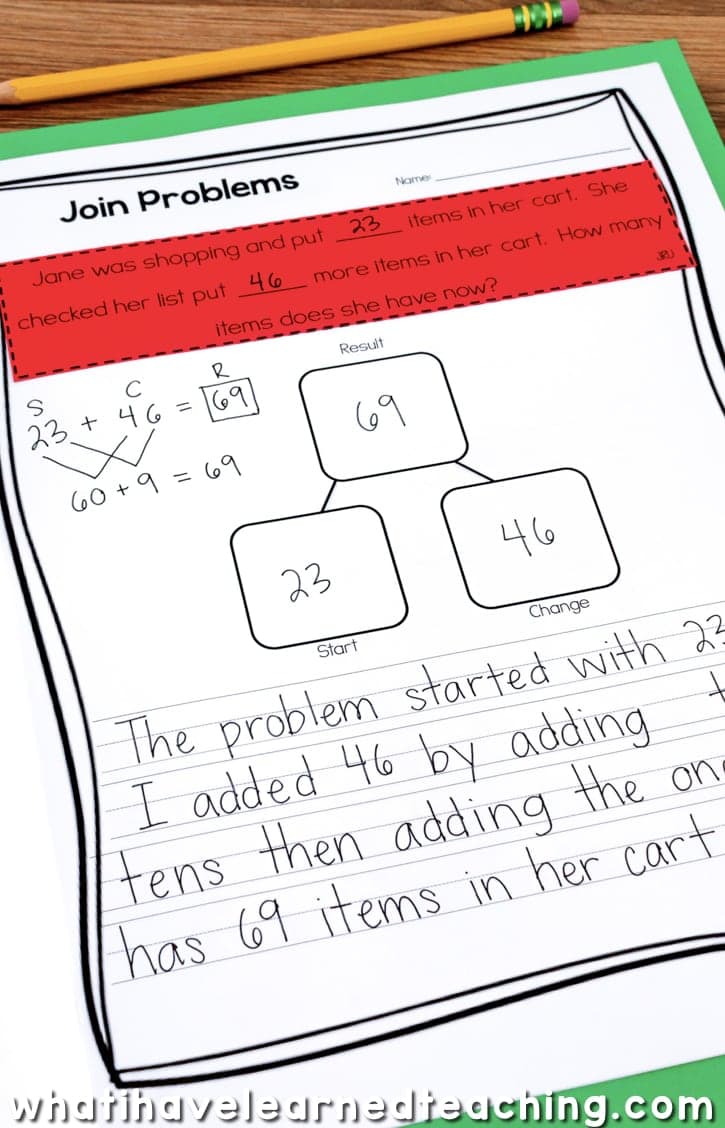 Join Problems
Name:
Jane was shopping and put 23 items in her cart. She
checked her list put 46 more items in her cart. How many
items does she have now?
JRU
S C R
23 + 46 = 69
60 + 9 = 69
Result
69
23
46
Start
Change
The problem started with 23
I added 46 by adding
tens then adding the
has 69 items in her cart
whatihavelearnedteaching.com